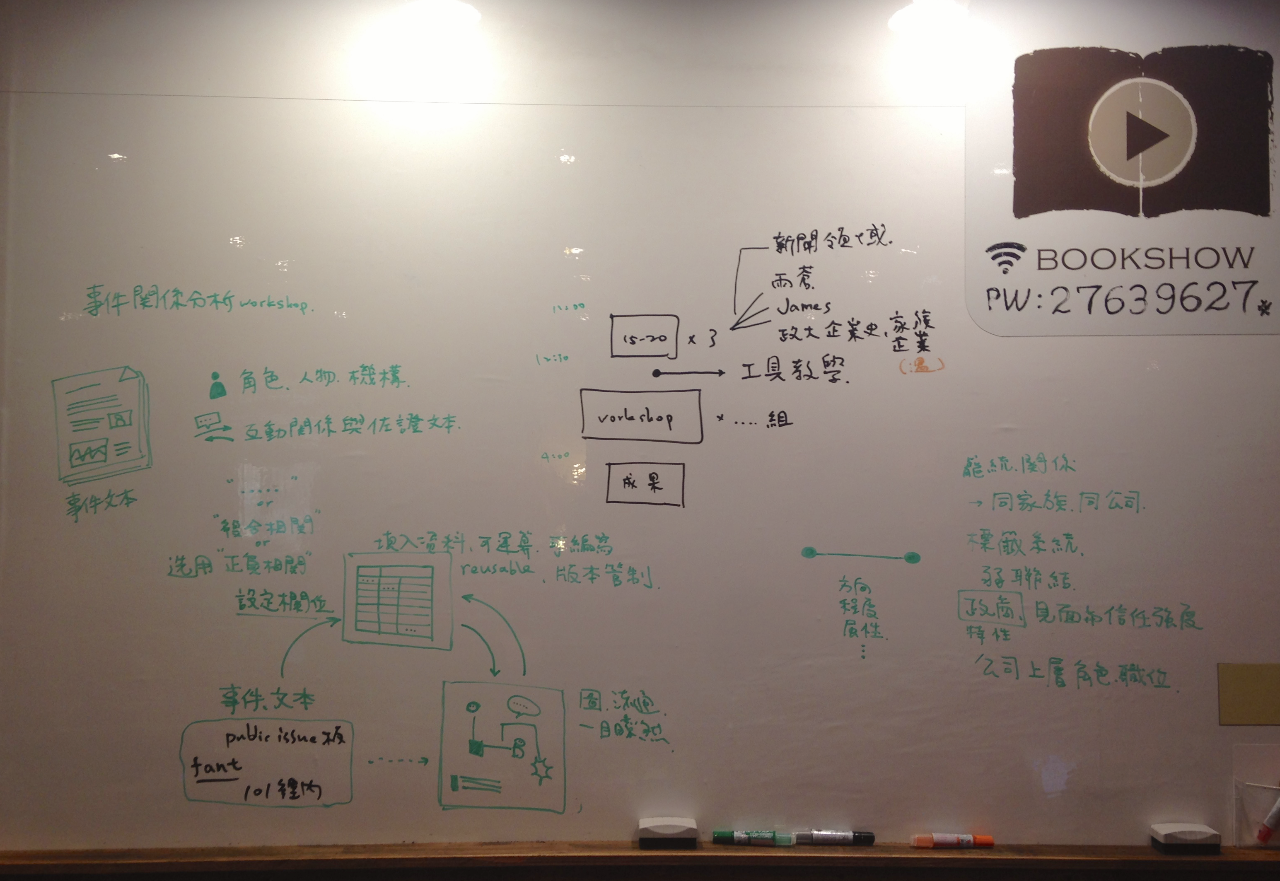 BOOKSHOW
PW:27639627*
事件關係分析 workshop.
事件文本
角色、人物、機構.
互動關係與佐證文本.
"......"
or
"複合相關"
or
選用"正負相關"
設定欄位
填入資料、可運算、
reusable、版本管制.
事件、文本
public issue 板
101
圖、流通
一目瞭然
B
15-20 × 3
新聞領域.
雨蒼.
James
政大企業史、家族
企業
工具教學.
workshop × .... 組
4:00
成果
方向
程度
屬性.
⋮
關係
→ 同家族、同公司.
標籤系統.
弱聯結.
政商、見面和信任強度
特性
公司上層角色、職位